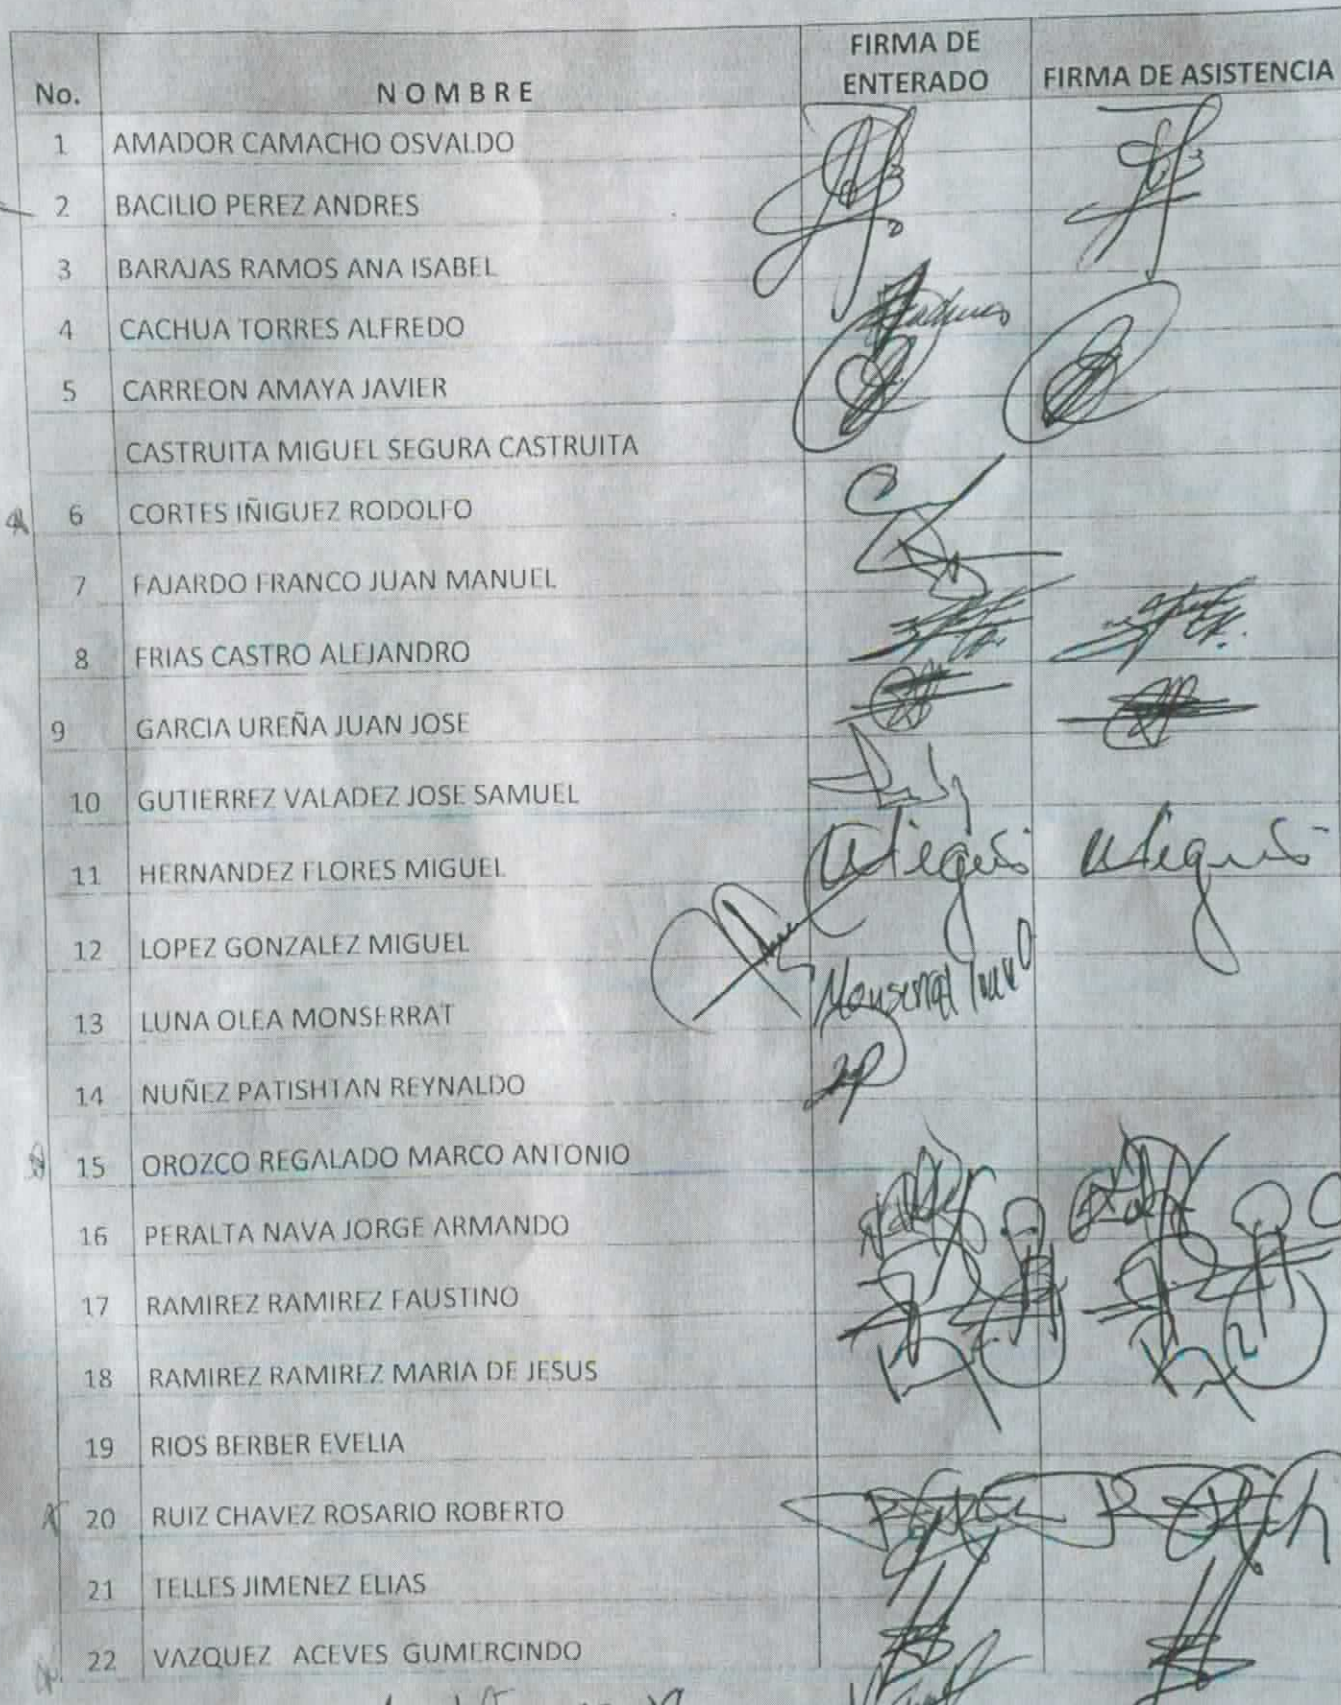 No. NOMBRE FIRMA DE ENTERADO FIRMA DE ASISTENCIA
1 AMADOR CAMACHO OSVALDO
2 BACILIO PEREZ ANDRES
3 BARAJAS RAMOS ANA ISABEL
4 CACHUA TORRES ALFREDO
5 CARREON AMAYA JAVIER
CASTRUITA MIGUEL SEGURA CASTRUITA
6 CORTES IÑIGUEZ RODOLFO
7 FAJARDO FRANCO JUAN MANUEL
8 FRIAS CASTRO ALEJANDRO
9 GARCIA UREÑA JUAN JOSE
10 GUTIERREZ VALADEZ JOSE SAMUEL
11 HERNANDEZ FLORES MIGUEL
12 LOPEZ GONZALEZ MIGUEL
13 LUNA OLEA MONSERRAT
14 NUÑEZ PATISHTAN REYNALDO
15 OROZCO REGALADO MARCO ANTONIO
16 PERALTA NAVA JORGE ARMANDO
17 RAMIREZ RAMIREZ FAUSTINO
18 RAMIREZ RAMIREZ MARIA DE JESUS
19 RIOS BERBER EVELIA
20 RUIZ CHAVEZ ROSARIO ROBERTO
21 TELLES JIMENEZ ELIAS
22 VAZQUEZ ACEVES GUMERCINDO